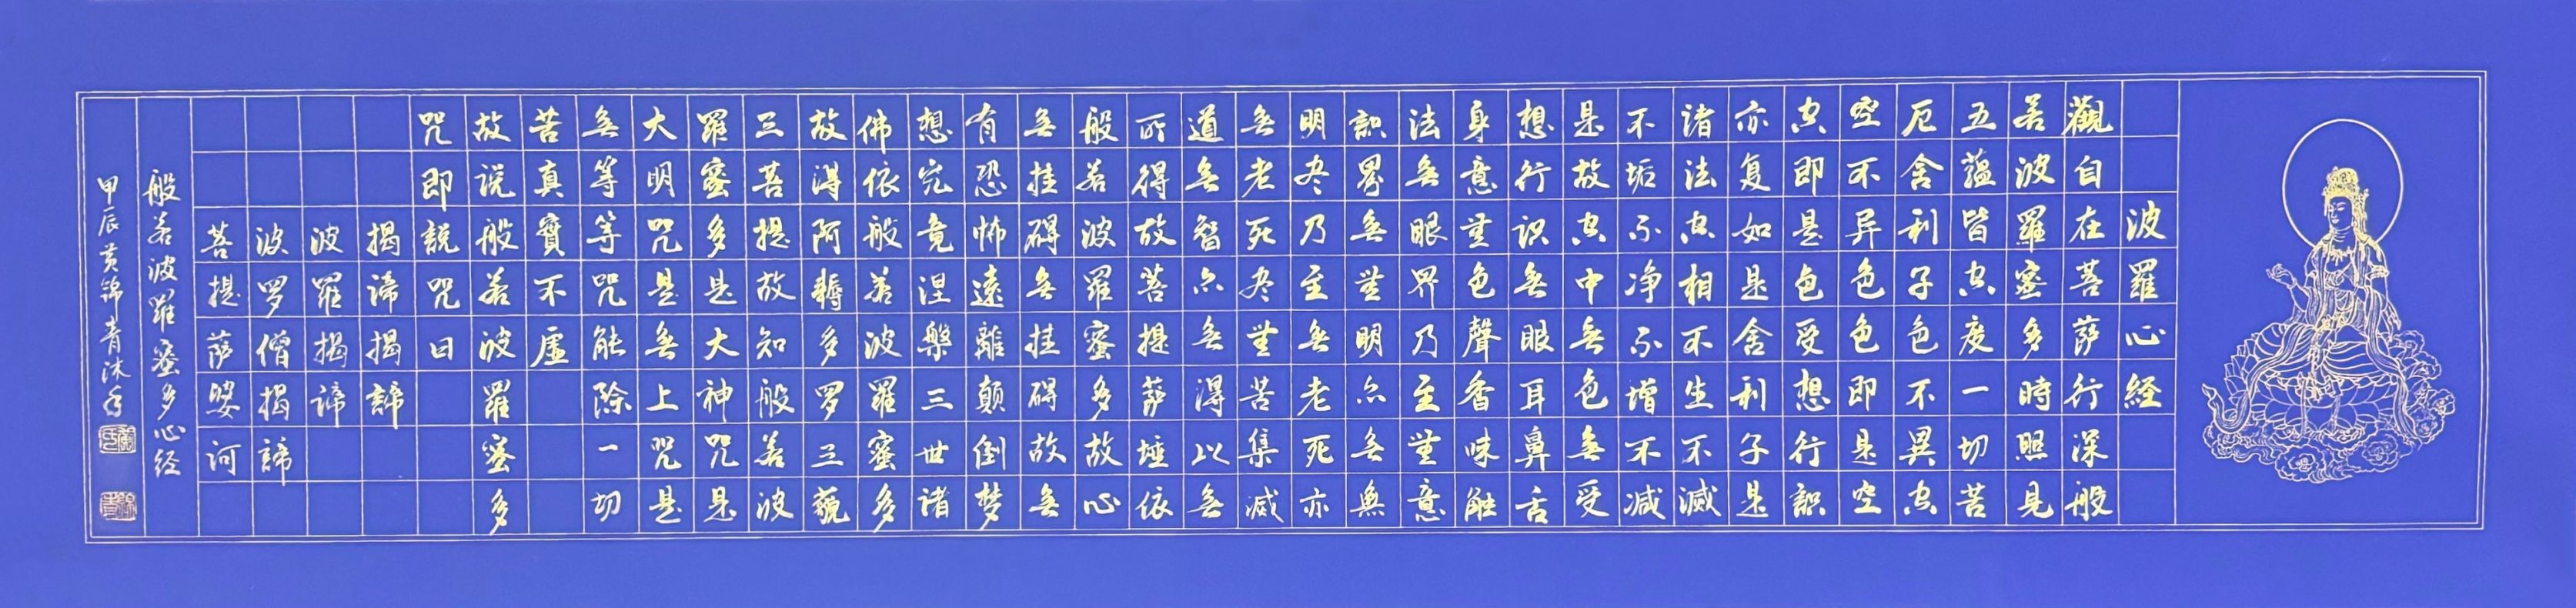 波羅心経
觀自在菩薩行深般
若波羅蜜多時照見
五蘊皆空度一切苦
厄舍利子色不異空
空不异色色即是空
空即是色受想行識
亦复如是舍利子是
諸法空相不生不滅
不垢不净不增不减
是故空中无色无受
想行识无眼耳鼻舌
身意無色聲香味触
法无眼界乃至無意
識界无無明亦无無
明尽乃至无老死亦
无老死尽無苦集滅
道无智亦无得以无
所得故菩提萨埵依
般若波羅蜜多故心
无挂碍无挂碍故无
有恐怖遠離颠倒梦
想究竟涅槃三世諸
佛依般若波羅蜜多
故得阿耨多罗三藐
三菩提故知般若波
羅蜜多是大神咒是
大明咒是无上咒是
无等等咒能除一切
苦真實不虚
故说般若波羅蜜多
咒即説咒曰
揭諦揭諦
波羅揭諦
波罗僧揭諦
菩提萨婆诃
般若波羅蜜多心经
甲辰黄錦青沐手